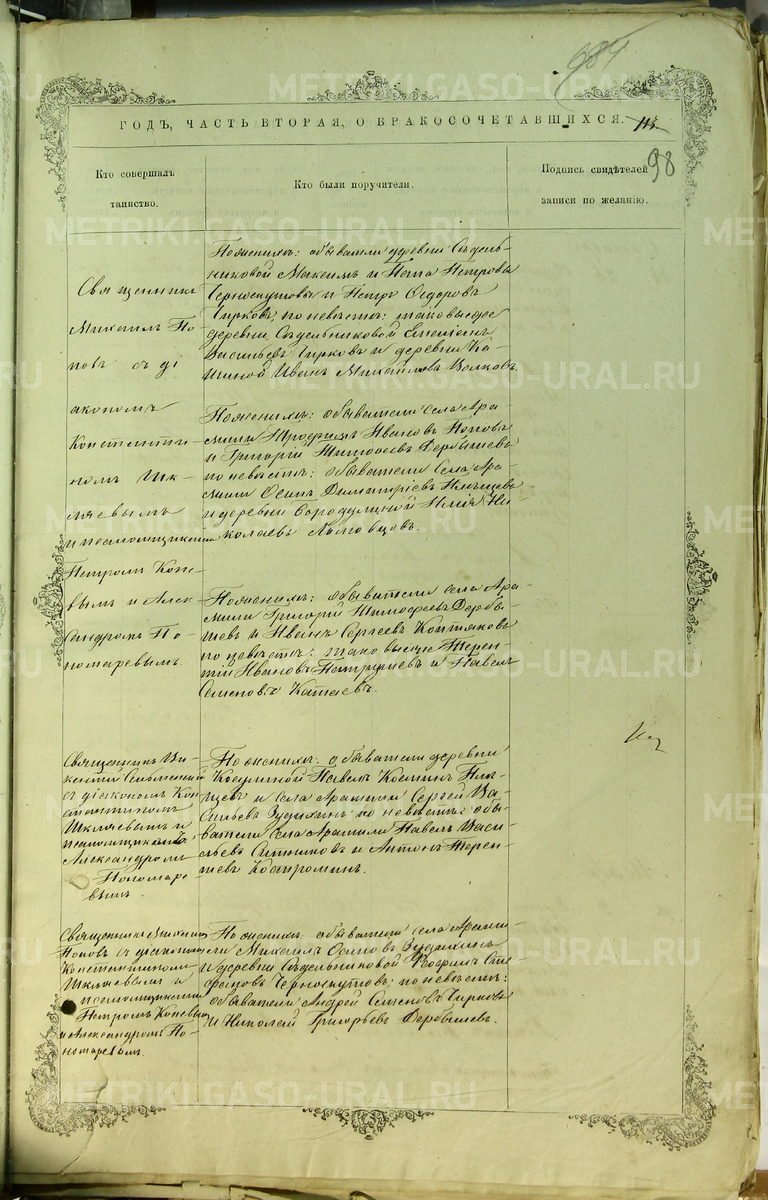 984
ГОДЪ, ЧАСТЬ ВТОРАЯ, О БРАКОСОЧЕТАВШИХСЯ.
98
Кто совершалъ
таинство.
Кто были поручители.
Подпись свидѣтелей
записи по желанію.
Священникъ
Михаилъ По-
повъ съ ді
акономъ
Константи-
номъ Шк-
ляевымъ
и псаломщиками
Петромъ Коне-
вымъ и Алек-
сандромъ По-
номаревымъ
По женихѣ: обыватели деревни Сѣдель-
никовой Максимъ и Петровы
Черноскутовы и Петръ Ѳедоровъ
Чирковъ, по невѣстѣ: таковые же
деревни Сѣдельниковой Емеліанъ
Васильевъ Чирковъ и деревни Ка-
шиной Иванъ Михайловъ Волковъ.
По женихѣ: обыватели села Ара-
мили Трофимъ Ивановъ Поповъ
и Григорій Тимофеевъ Дербышевъ
по невѣстѣ: обыватели села Ара-
мили Осипъ Димитріевъ
и деревни Бородулиной Илія Ни-
колаевъ
По женихѣ: обыватели села Ара-
мили Григорій Тимофеевъ Дербы-
шевъ и Иванъ Сергеевъ Коптяковъ
по невѣстѣ: таковые же Терен-
тій Ивановъ и Павелъ
Семеновъ Катаевъ.
Священникъ Ви-
кентій
съ діакономъ Кон-
стантиномъ
Шкляевымъ и
псаломщикомъ
Александромъ
Пономаре-
вымъ.
По женихѣ: обыватели деревни
Косулиной Павелъ Космин
и села Арамили Сергей Ва-
сильевъ Зудихинъ по невѣстѣ: обы-
ватели села Арамили Павелъ Васи-
льевъ Ситниковъ и Антонъ Терен-
тьевъ Костроминъ.
Священникъ Михаилъ
Поповъ съ діакономъ
Константиномъ
Шкляевымъ и
псаломщиками
Петромъ Коневымъ
и Александромъ По-
номаревымъ.
По женихѣ: обыватели села Арами-
ли Михаилъ Осиповъ Зудихинъ
и деревни Сѣдельниковой Сте-
фановъ Черноскутовъ; по невѣстѣ:
обыватели Андрей Семеновъ Чирковъ
и Николай Григорьевъ Дербышевъ.
METRIKI.GASO-URAL.RU